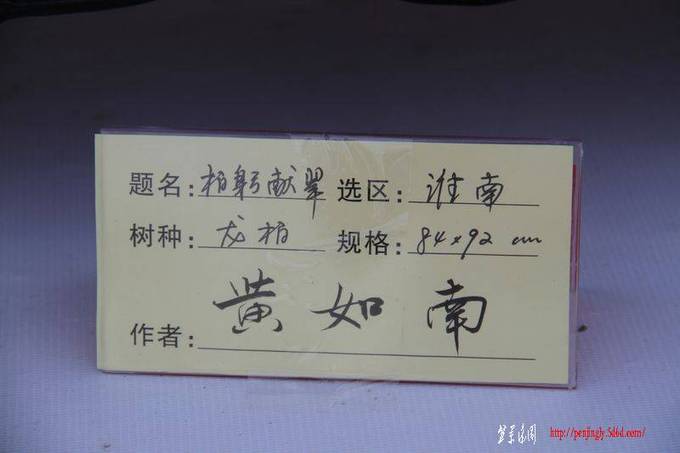 题名：柏躬献翠 选区：淮南
树种：龙柏 规格：84×92 cm
作者：黄如南
http://penjingly.5d6d.com